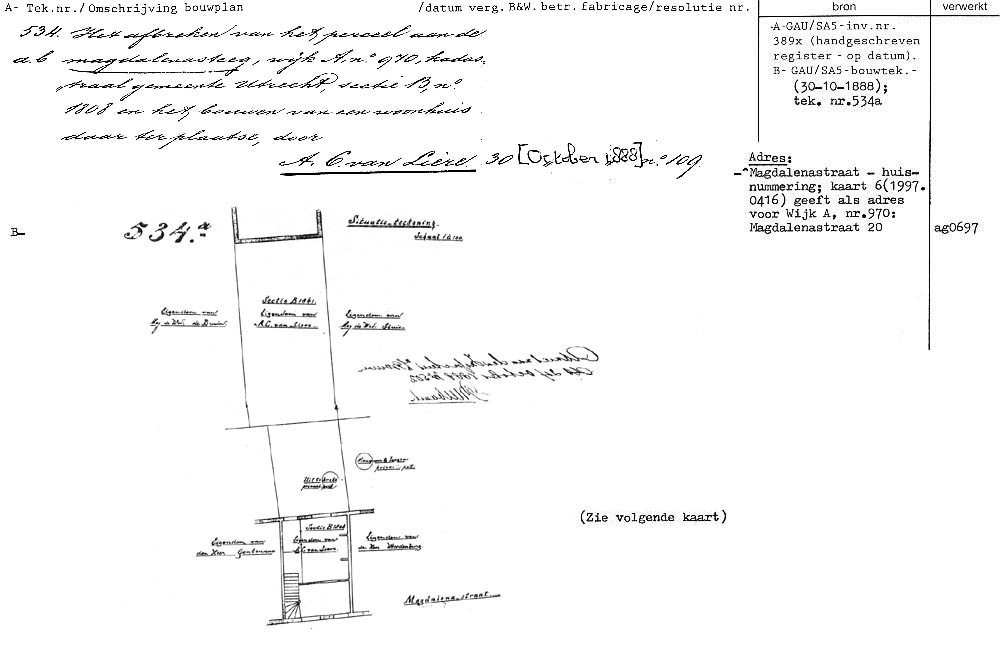 A- Tek.nr./Omschrijving bouwplan /datum verg. B&W. betr. fabricage/resolutie nr.
bron
verwerkt
534. Het afbreken van het perceel aan de
a.b magdalenasteeg, wijk A. nº 970, kadas,
traal gemeente Utrecht, sectie B, nº
1808 en het bouwen van een woonhuis
daar ter plaatse, door
A. C. van Liere. 30 [October 1888] nº 109
A-GAU/SA5-inv.nr.
389x (handgeschreven
register - op datum).
B- GAU/SA5-bouwtek.-
(30-10-1888);
tek. nr.534a
Adres:
-^Magdalenastraat - huis-
nummering; kaart 6(1997.
0416) geeft als adres
voor Wijk A, nr.970:
Magdalenastraat 20
ag0697
B-
534.a
Situatie-teekening.
Schaal 1 à 100
Sectie B 1961.
Eigendom van
A.C. van Liere
Eigendom van
Eigendom van
(Zie volgende kaart)
Sectie B 1808
Eigendom van
A.C. van Liere
Eigendom van
den Heer
Eigendom van
den Heer
Magdalena-straat